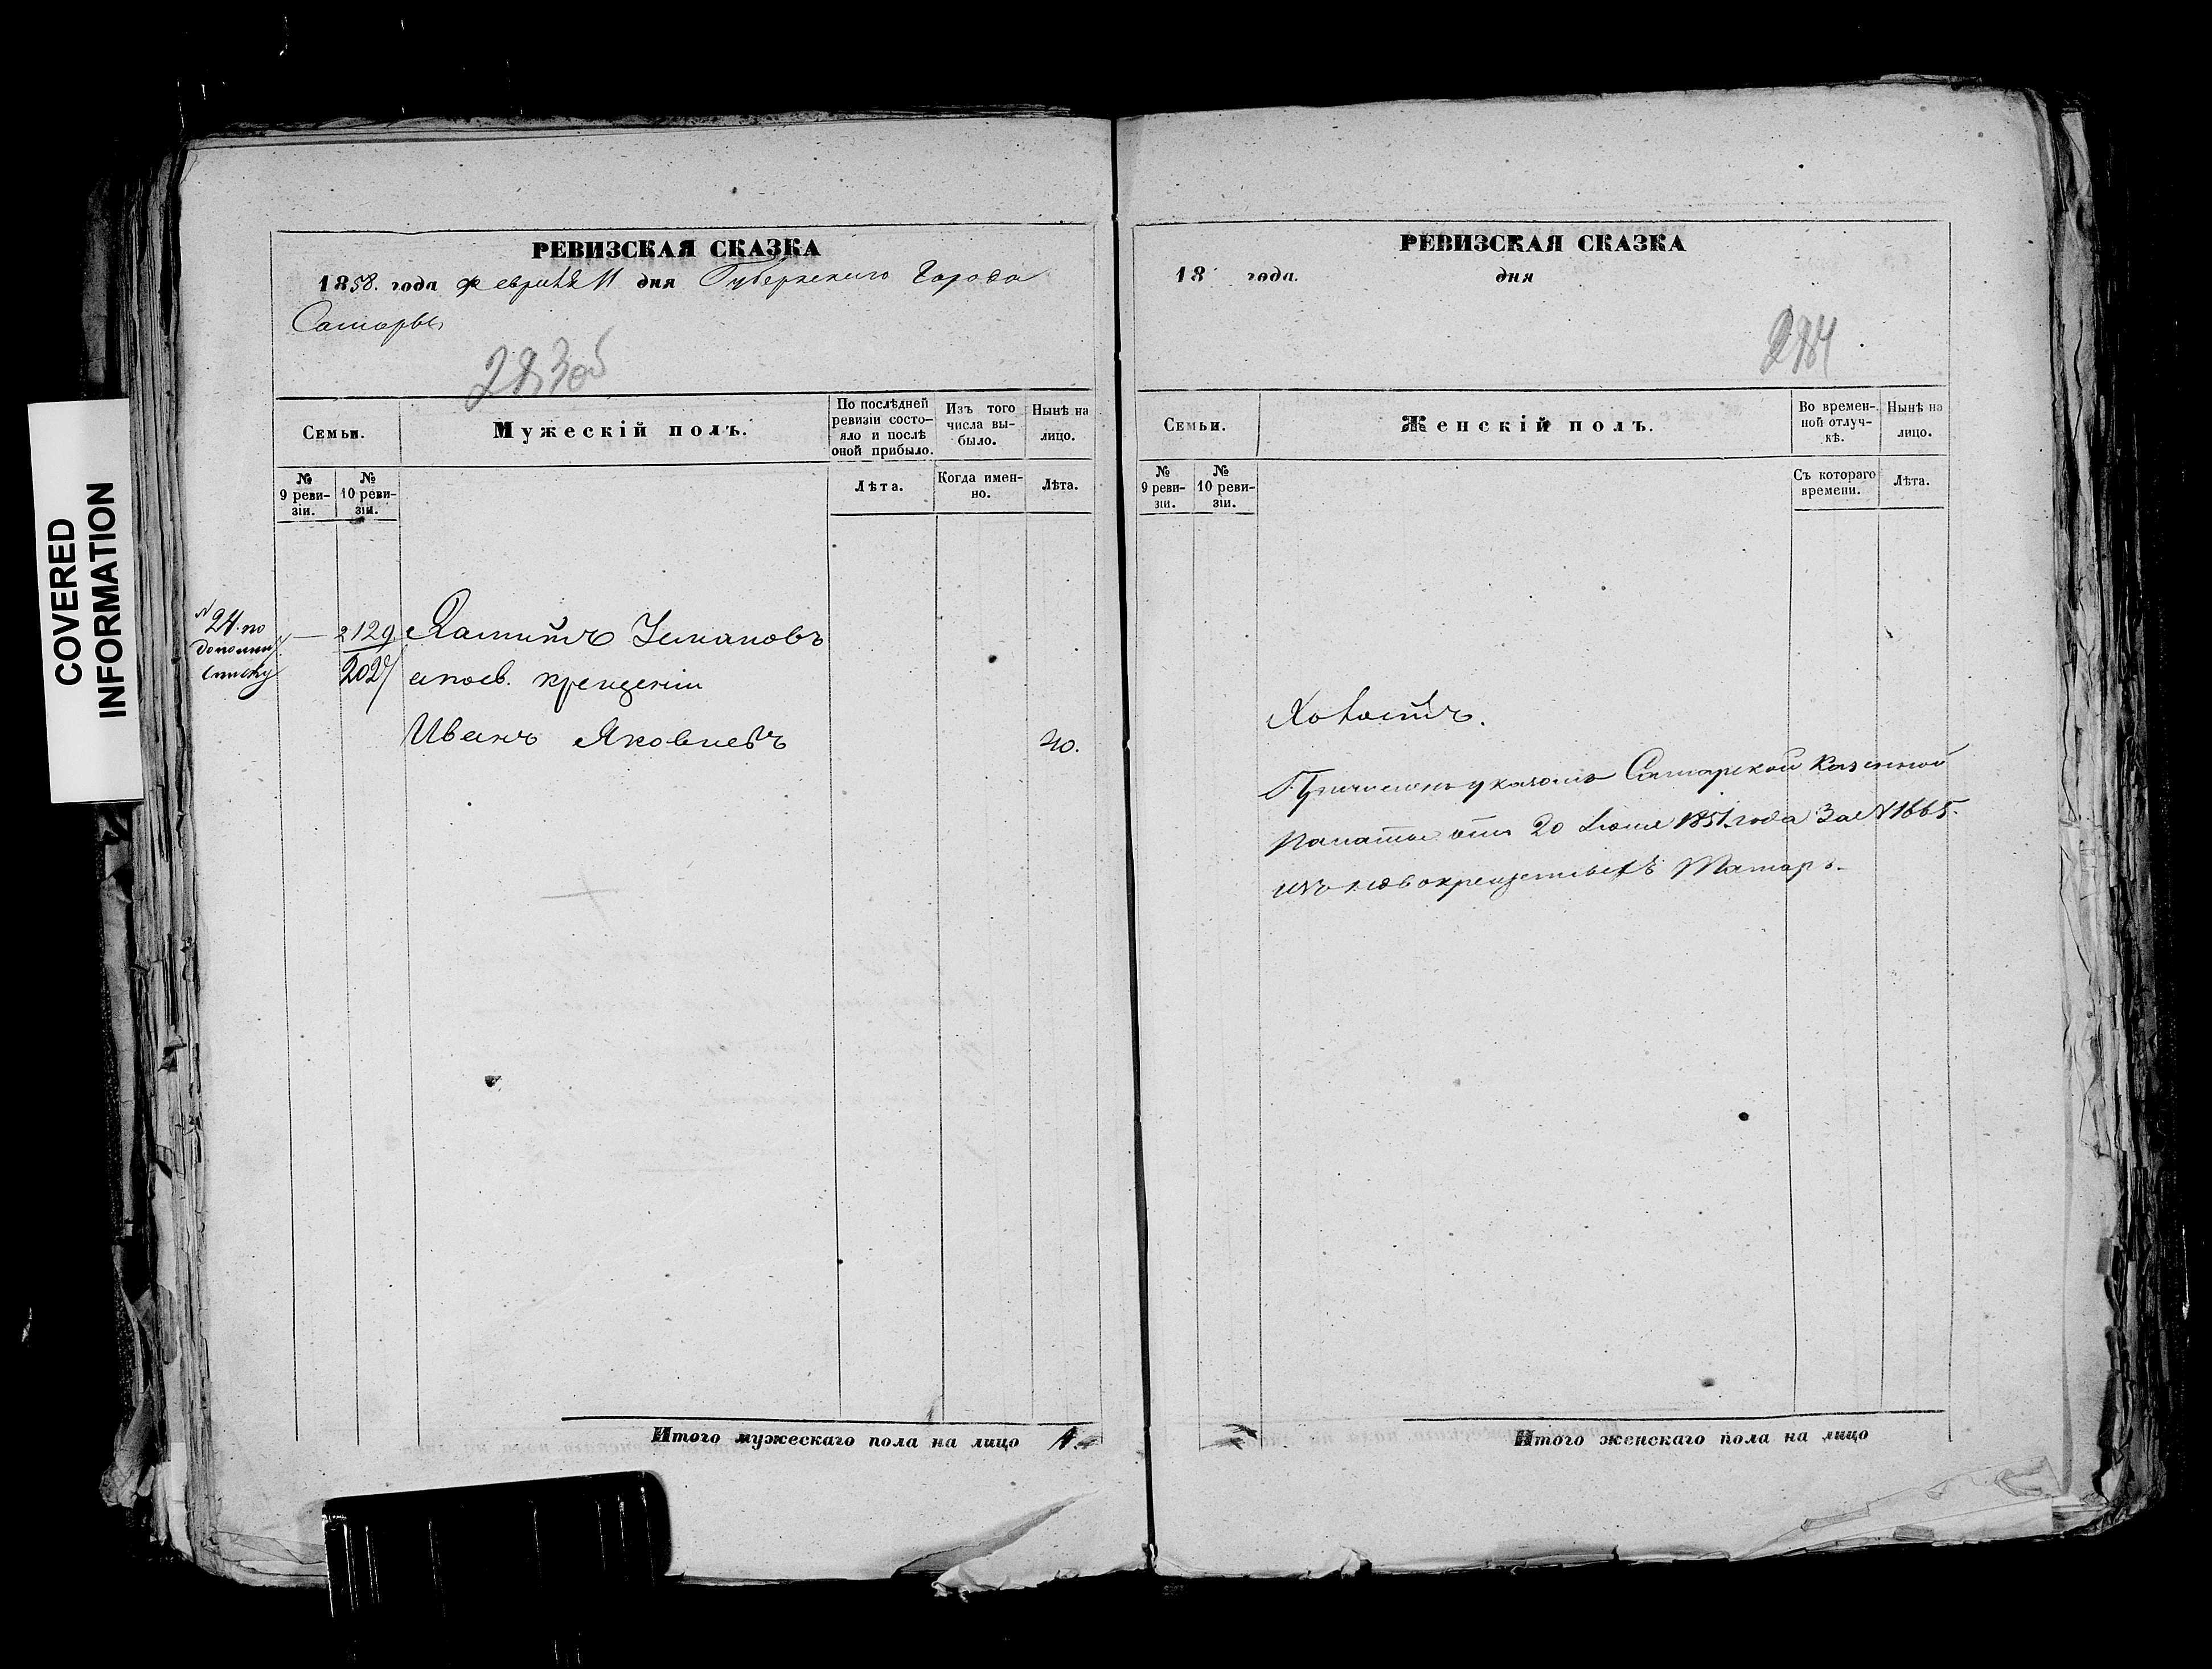 COVERED
INFORMATION
РЕВИЗСКАЯ СКАЗКА
1858. года февраля 11 дня Губернскаго Города
Самары
283об
Семьи.
Мужескій полъ.
По послѣдней
ревизіи состо-
яло и послѣ
оной прибыло.
Изъ того
числа вы-
было.
Нынѣ на
лицо.
№
9 реви-
зіи.
№
10 реви-
зіи.
Лѣта.
Когда имен-
но.
Лѣта.
№ 24. по
дополнит.
списку
— 2129
2027
Усмановъ
а посв. крещеніи
Иванъ Яковлевъ
40.
Итого мужескаго пола на лицо 1.
РЕВИЗСКАЯ СКАЗКА
18 года. дня
284
Семьи.
Женскій полъ.
Во времен-
ной отлуч-
кѣ.
Нынѣ на
лицо.
№
9 реви-
зіи.
№
10 реви-
зіи.
Съ котораго
времени.
Лѣта.
Холостъ.
Причисленъ указомъ Самарской Казенной
Палаты отъ 20 Іюля 1851. года За № 1665.
изъ новокрещенныхъ Татаръ.
Итого женскаго пола на лицо